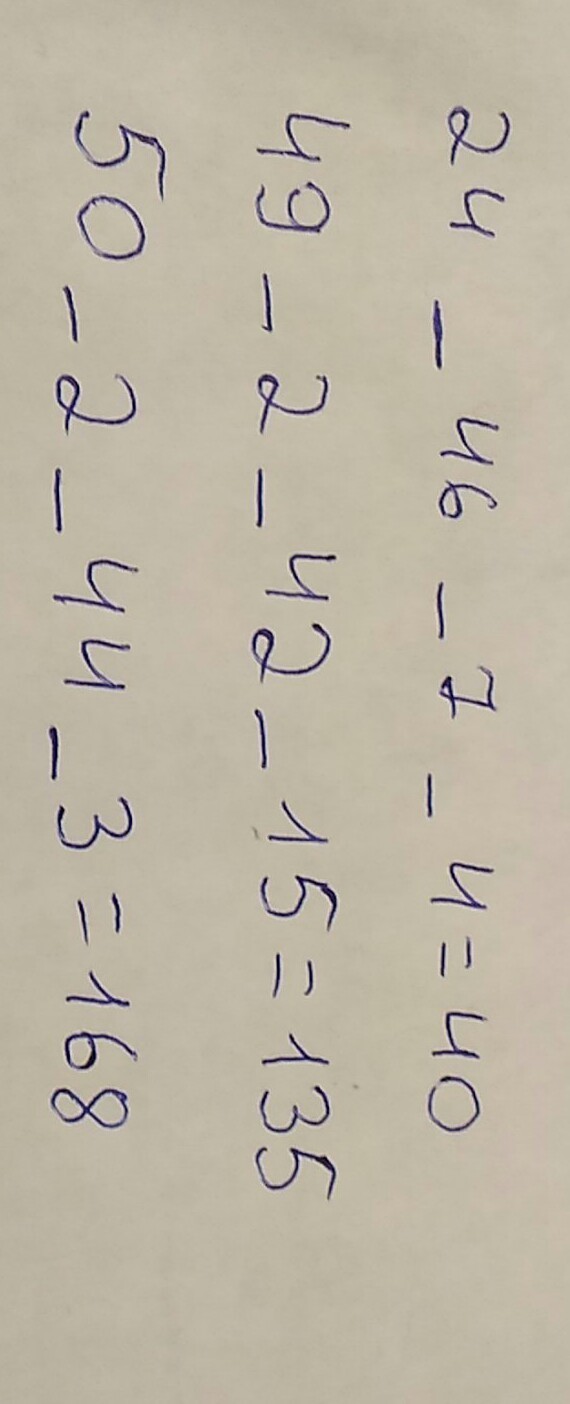 24 - 46 - 7 - 4 = 40
49 - 2 - 42 - 15 = 135
50 - 2 - 44 - 3 = 168